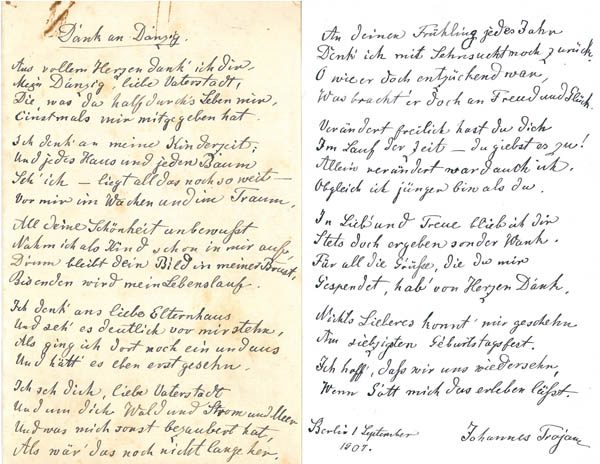 Dank an Danzig.
Aus vollem Herzen dank' ich dir,
Mein Danzig, liebe Vaterstadt,
Die, was da half durch's Leben mir,
Einstmals mir mitgegeben hat.
Ich denk' an meine Kinderzeit;
Und jedes Haus und jeden Baum
Seh' ich – liegt all das noch so weit –
Vor mir im Wachen und im Traum.
All deine Schönheit unbewusst
Nahm ich als Kind schon in mir auf,
Drum bleibt dein Bild in meiner Brust,
Bis enden wird mein Lebenslauf.
Ich denk' ans liebe Elternhaus
Und seh' es deutlich vor mir stehn,
Als ging ich dort noch ein und aus
Und hätt' es eben erst gesehn.
Ich seh dich, liebe Vaterstadt
Und um dich Wald und Strom und Meer
Und was mich sonst bezaubert hat,
Als wär' das noch nicht lange her.
An deinen Frühling jedes Jahr
Denk' ich mit Sehnsucht noch zurück.
O wie er doch entzückend war,
Was bracht' er doch an Freud und Glück.
Verändert freilich hast du dich
Im Lauf der Zeit – du giebst es zu!
Allein verändert ward auch ich.
Obgleich ich jünger bin als du.
In Lieb' und Treue blieb ich dir
Stets doch ergeben sonder Wank.
Für all die Grüße, die du mir
Gespendet, hab' von Herzen Dank.
Nichts Lieberes konnt' mir geschehn
Am siebzigsten Geburtstagsfest.
Ich hoff', daß wir uns wiedersehn,
Wenn Gott mich das erleben läßt.
Berlin 1 September
1907.
Johannes Trojan